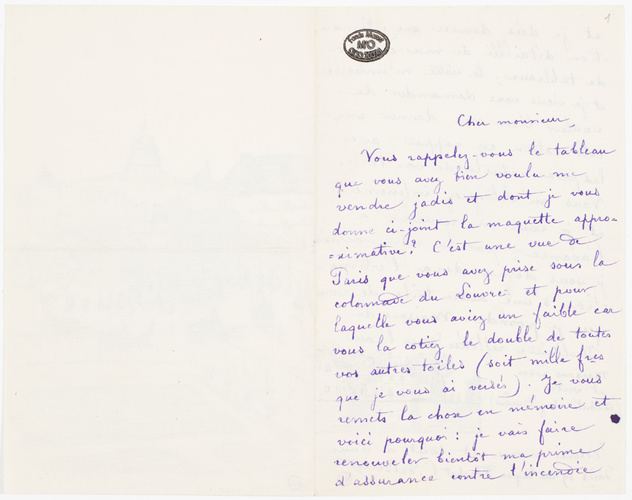 1
Fonds Moreau
MO
Cher monsieur,
Vous rappelez-vous le tableau
que vous avez bien voulu me
vendre jadis et dont je vous
donne ci-joint la maquette appro=
=ximative? C'est une vue de
Paris que vous avez prise sous la
colonnade du Louvre et pour
laquelle vous aviez un faible car
vous la cotiez le double de toutes
vos autres toiles (soit mille frcs
que je vous ai versés). Je vous
remets la chose en mémoire et
voici pourquoi: je vais faire
renouveler bientôt ma prime
d'assurance contre l'incendie